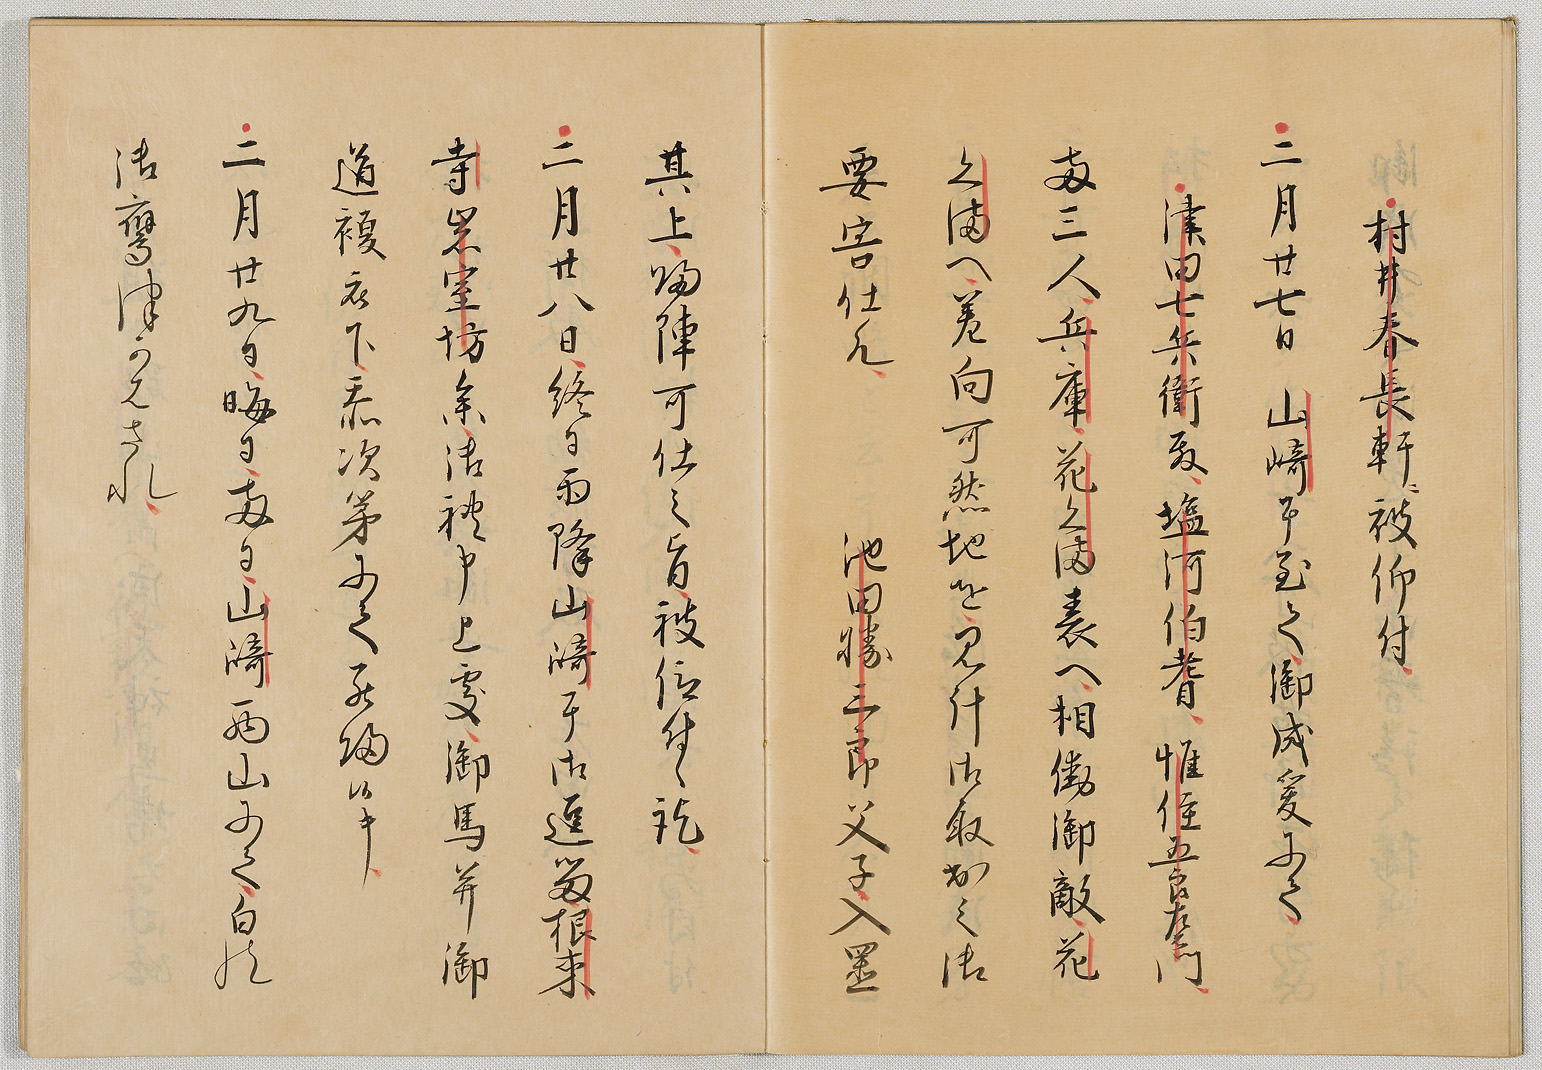 村井春長軒に被仰付
二月廿七日 山崎ニ至て御成爰ニて
津田七兵衛殿塩河伯耆惟住五郎左衛門
両三人兵庫花くま表へ相働御敵花
くまへ差向可然地を見計御取出之御
要害仕候 池田勝三郎父子入置
其上帰陣可仕之旨被仰付候訖
二月廿八日終日雨降山崎ニ御逗留根来
寺岩室坊参御禮申上處御馬并御
道複衣下忝次第ニて罷帰候キ
二月廿九日晦日両日山崎西山ニて白
御鷹つかハされ